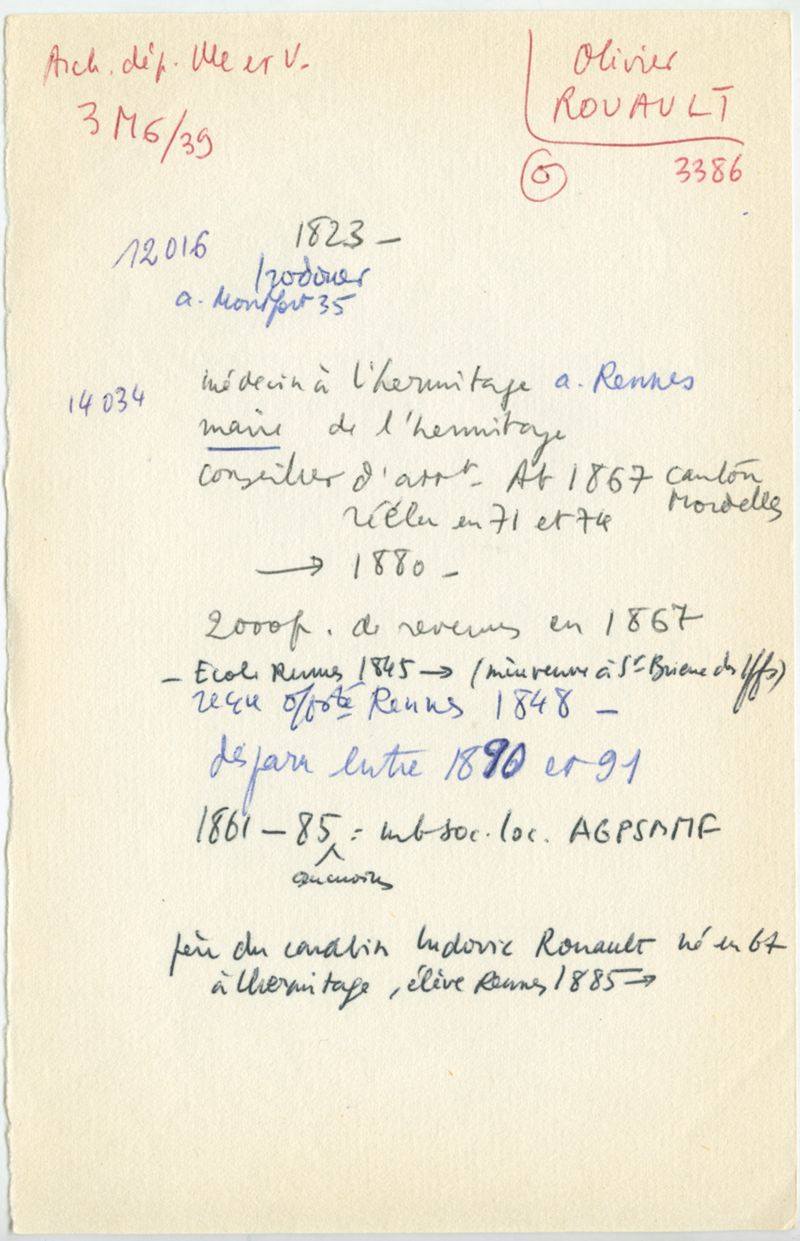 Arch. dép. Ille et V.
3 M6/39
Olivier
ROUAULT
G
3386
12016
1823 -
Irodouer
a. Montfort 35
14034
médecin à l'hermitage a. Rennes
maire de l'hermitage
conseiller d'arrt. At 1867 canton
Mordelles
réélu en 71 et 74
→ 1880 -
2000f. de revenus en 1867
- Ecole Rennes 1845 → (mère veuve à St Brieuc des Iffs)
reçu offté Rennes 1848 -
disparu entre 1890 et 91
1861 - 85 : mb soc. loc. AGPSMMF
au moins
père du carabin Ludovic Rouault né en 67
à Lhermitage, élève Rennes 1885 →